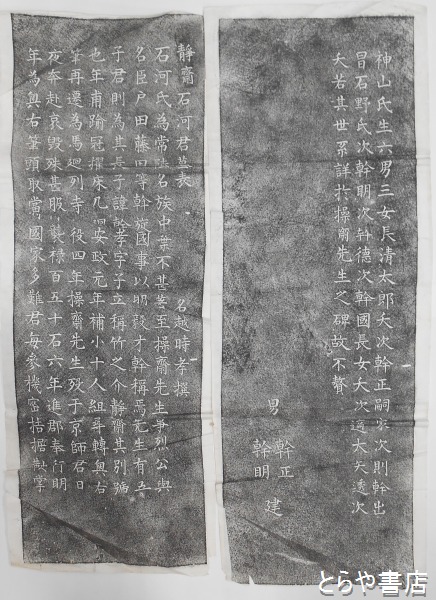 靜齋石河君墓表　名越時孝撰
石河氏為常陸名族中葉不甚著至操齋先生事烈公與
名臣戸田藤田等幹旋國事以明毅才幹稱焉先生有五
子君則為其長子諱幹孝字子立稱竹之介靜齋其別號
也年甫踰冠擢床几迴安政元年補小十人組尋轉奥右
筆再遷為馬廻列寺役四年操齋先生歿于京師君日
夜奔赴哀毀殊甚服襲祿百五十石六年進郡奉行明
年為奥右筆頭取當國家多難君每參機密拮据執掌
神山氏生六男三女長清太郎夭次幹正嗣家次則幹出
冒石野氏次幹明次幹德次幹國長女夭次適大矢透次
夭若其世系詳於操齋先生之碑故不贅
男　幹正
幹明　建
とらや書店